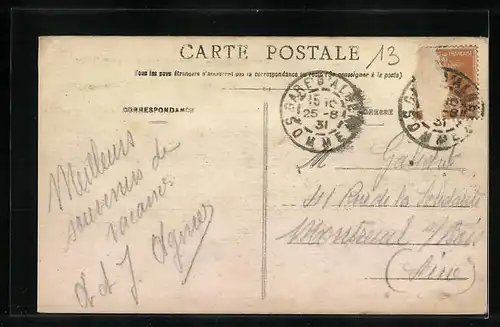 CARTE POSTALE
13
Tous les pays étrangers n'acceptent pas la correspondance au recto (Se renseigner à la poste).
CORRESPONDANCE
ADRESSE
GARE D'ALBERT
15 10
25-8
31
SOMME
Meilleurs
souvenirs de
vacances
A et J.
M
41 Rue de la Solidarité
Montreuil s/Bois
(Seine)